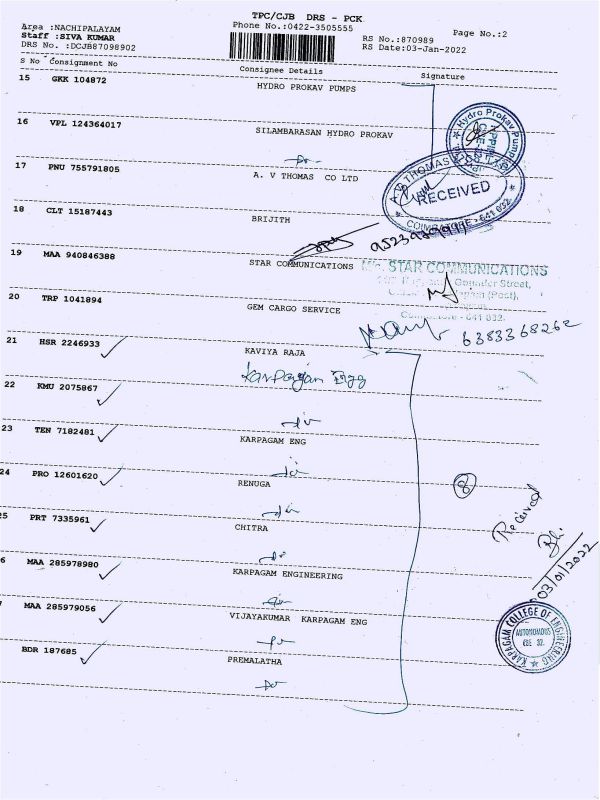 TPC/CJB DRS - PCK
Area :NACHIPALAYAM Phone No.:0422-3505555
Staff :SIVA KUMAR RS No.:870989 Page No.:2
DRS No. :DCJB87098902 RS Date:03-Jan-2022
S No Consignment No Consignee Details Signature
15 GKK 104872 HYDRO PROKAV PUMPS
16 VPL 124364017 SILAMBARASAN HYDRO PROKAV
Hydro Prokav Pump
17 PNU 755791805 A. V THOMAS CO LTD
RECEIVED
COIMBATORE - 641 032.
18 CLT 15187443 BRIJITH
19 MAA 940846388 STAR COMMUNICATIONS
STAR COMMUNICATIONS
Gounder Street,
(Post),
Coimbatore - 641 032.
20 TRP 1041894 GEM CARGO SERVICE
6383368262
21 HSR 2246933 KAVIYA RAJA
Karpagam Engg
22 KMU 2075867
do
23 TEN 7182481 KARPAGAM ENG
do
24 PRO 12601620 RENUGA
8
do
25 PRT 7335961 CHITRA
Received
do
6 MAA 285978980 KARPAGAM ENGINEERING
03/01/2022
do
7 MAA 285979056 VIJAYAKUMAR KARPAGAM ENG
KARPAGAM COLLEGE OF ENGINEERING
AUTONOMOUS
CBE 32.
do
BDR 187685 PREMALATHA
do